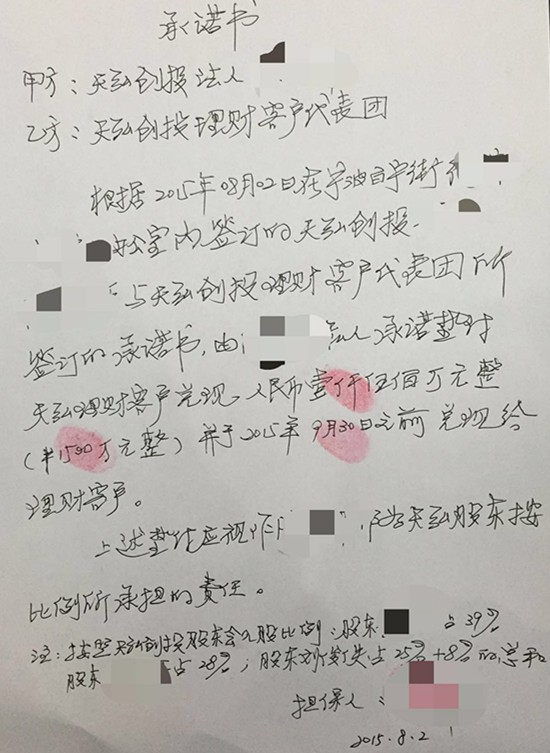 承诺书
甲方：天弘创投法人
乙方：天弘创投理财客户代表团
根据2015年08月02日在宁波百宁街
办公室内签订的天弘创投
与天弘创投理财客户代表团所
签订的承诺书，由 承诺垫付
天弘理财客户兑现，人民币壹仟伍佰万元整
（¥1500万元整）并于2015年9月30日之前兑现给
理财客户。
上述垫付应视作 天弘股东按
比例所承担的责任。
注：按照天弘创投股东会入股比例：股东 占39%
股东 占28%；股东刘 占25%+8%的总和
担保人：
2015.8.2